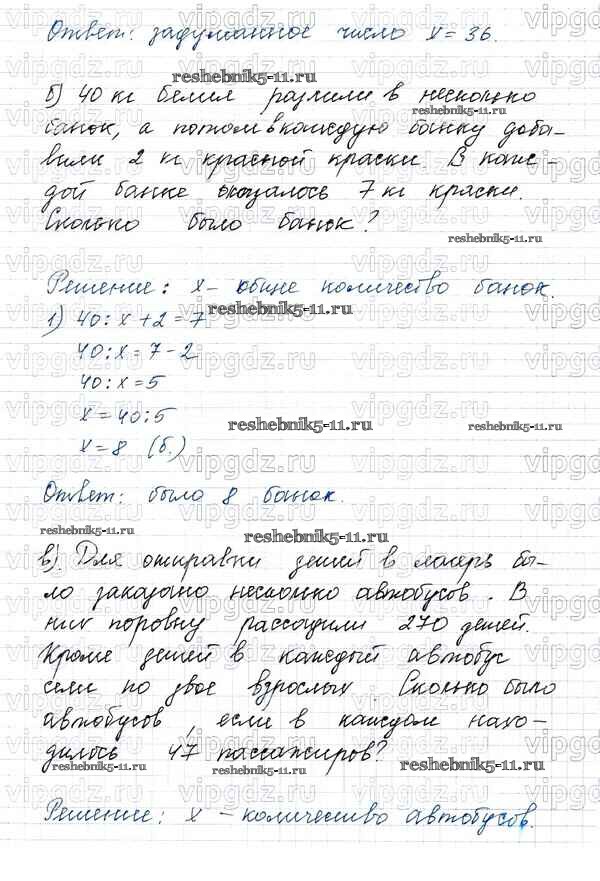 Ответ: задуманное число x = 36.
reshebnik5-11.ru
б) 40 кг белил разлили в несколько
reshebnik5-11.ru
банок, а потом в каждую банку доба-
вили 2 кг красной краски. В каж-
дой банке оказалось 7 кг краски.
Сколько было банок?
reshebnik5-11.ru
Решение: x – общее количество банок.
reshebnik5-11.ru
1) 40 : x + 2 = 7
40 : x = 7 - 2
40 : x = 5
x = 40 : 5
reshebnik5-11.ru
reshebnik5-11.ru
x = 8 (б.)
Ответ: было 8 банок.
reshebnik5-11.ru
reshebnik5-11.ru
в) Для отправки детей в лагерь бы-
ло заказано несколько автобусов. В
них поровну рассадили 270 детей.
Кроме детей в каждый автобус
сели по двое взрослых. Сколько было
автобусов, если в каждом нахо-
дилось 47 пассажиров?
reshebnik5-11.ru
reshebnik5-11.ru
Решение: x – количество автобусов.
vipgdz.ru